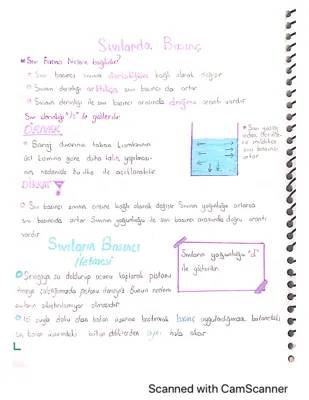 Sıvılarda Basınç
Sıvı Basıncı Nelere bağlıdır?
Sıvı basıncı sıvının derinliğine bağlı olarak değişir
Sıvının derinliği arttıkça sıvı basıncı da artar
Sıvının derinliği ile sıvı basıncı arasında doğru orantı vardır
Sıvı derinliği "h" ile gösterilir
ÖRNEK
Baraj duvarının taban kısmının
üst kısmına göre daha kalın yapılması-
nın nedenide bu ilke ile açıklanabilir
Sıvı yüzeyi-
nden derinle-
re inildikçe
sıvı basıncı
artar
DİKKAT
Sıvı basıncı sıvının cinsine bağlı olarak değişir Sıvının yoğunluğu artarsa
sıvı basıncıda artar Sıvının yoğunluğu ile sıvı basıncı arasında doğru orantı
vardır
Sıvıların Basıncı
İletmesi
Sıvıların yoğunluğu "d"
ile gösterilir.
Şırıngaya su doldurup ucunu kapatarak pistonu
itmeye çalıştığımızda pistonu
sıvıların sıkıştırılamıyor olmasıdır
İçi suyla dolu olan balon üzerine bastırmak basınç uyguladığımızı balondaki
balon üzerindeki bütün deliklerden aynı hızla çıkar
Scanned with CamScanner